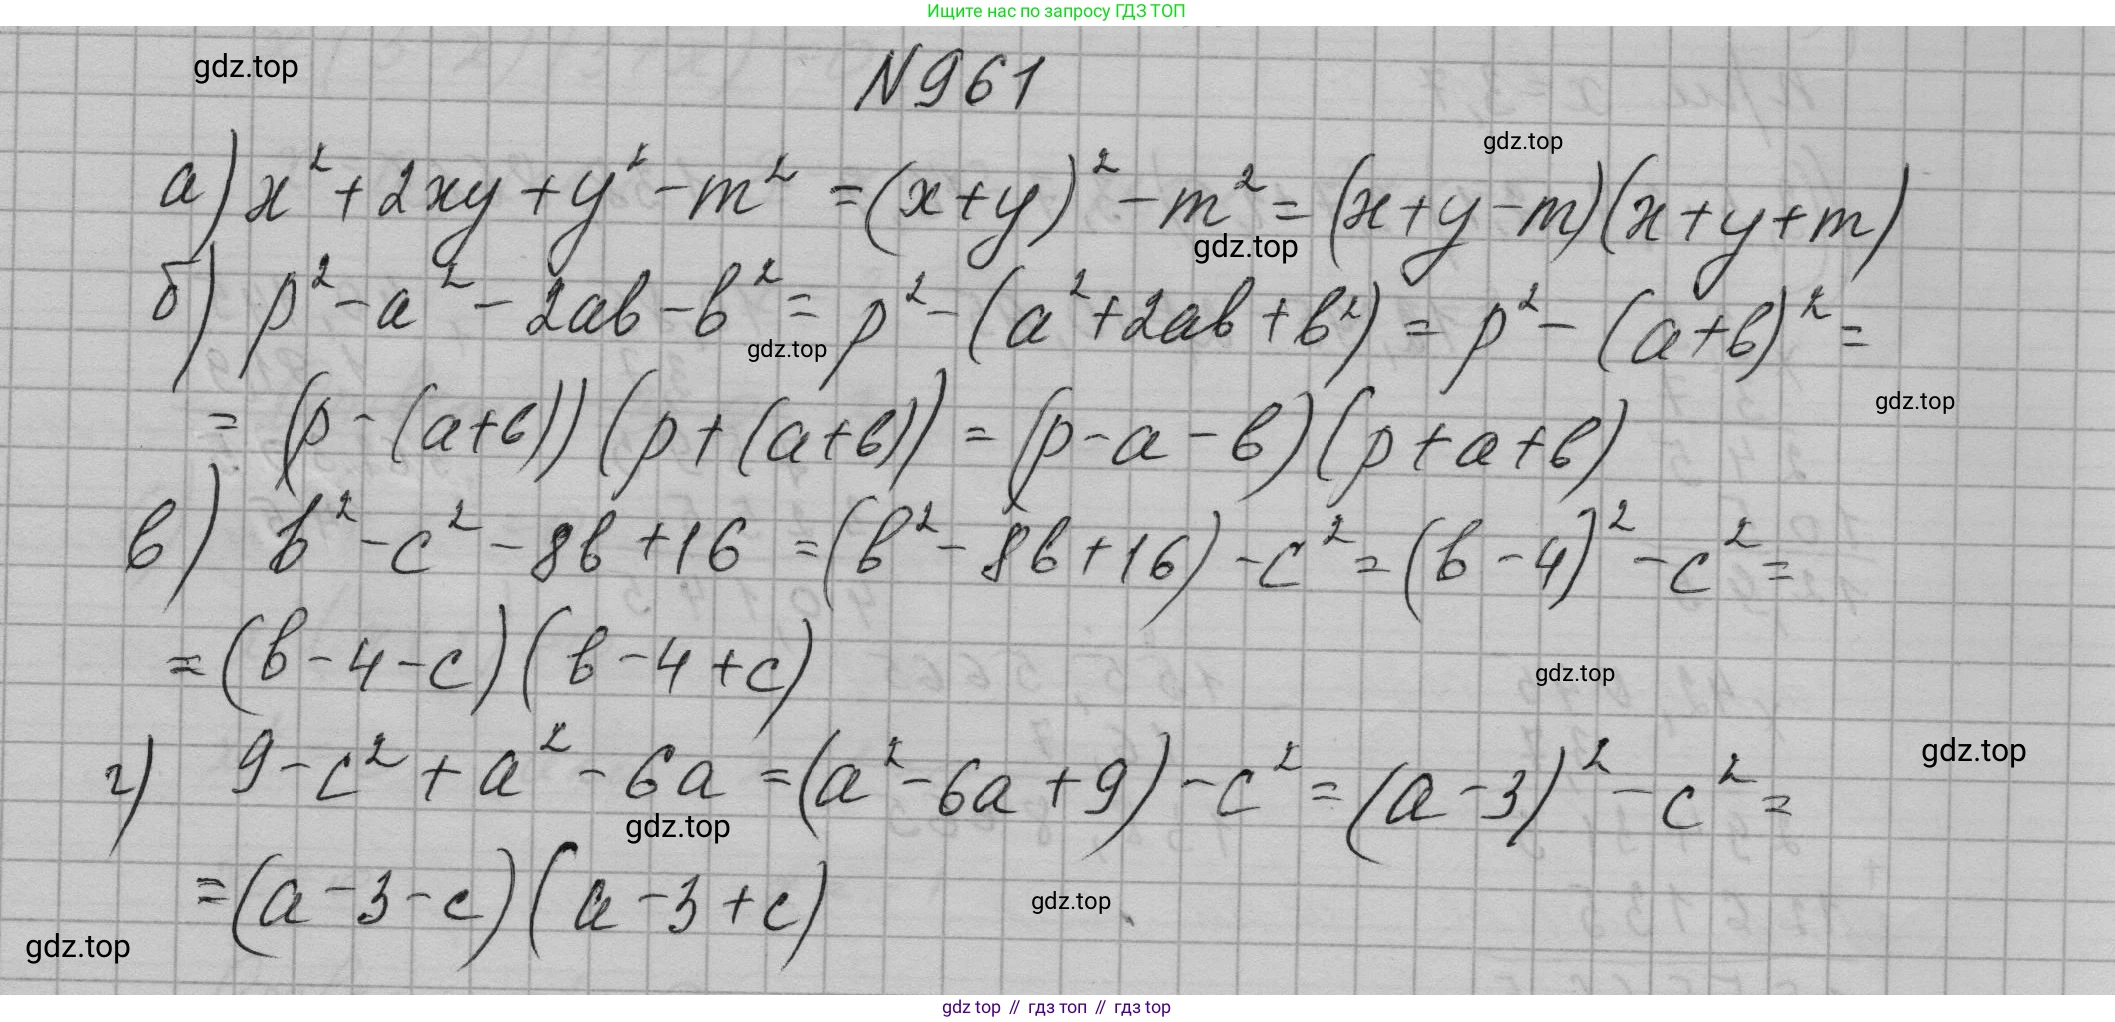 Ищите нас по запросу ГДЗ ТОП
gdz.top
N961
gdz.top
а) x² + 2xy + y² - m² = (x+y)² - m² = (x+y-m)(x+y+m)
gdz.top
б) p² - a² - 2ab - b² = p² - (a² + 2ab + b²) = p² - (a+b)² =
gdz.top
gdz.top
= (p - (a+b)) (p + (a+b)) = (p - a - b)(p + a + b)
в) b² - c² - 8b + 16 = (b² - 8b + 16) - c² = (b - 4)² - c² =
= (b - 4 - c) (b - 4 + c)
gdz.top
г) 9 - c² + a² - 6a = (a² - 6a + 9) - c² = (a - 3)² - c² =
gdz.top
gdz.top
= (a - 3 - c) (a - 3 + c)
gdz.top
gdz.top
gdz top // гдз топ // гдз top